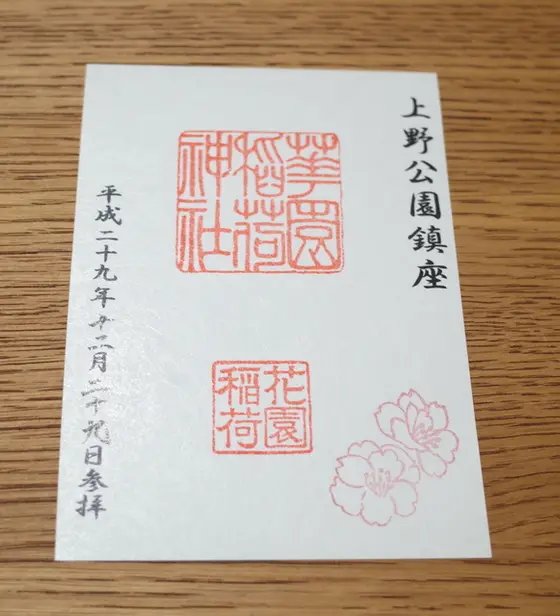 上野公園鎮座
華園稲荷神社
花園稲荷
平成二十九年十二月二十九日参拝